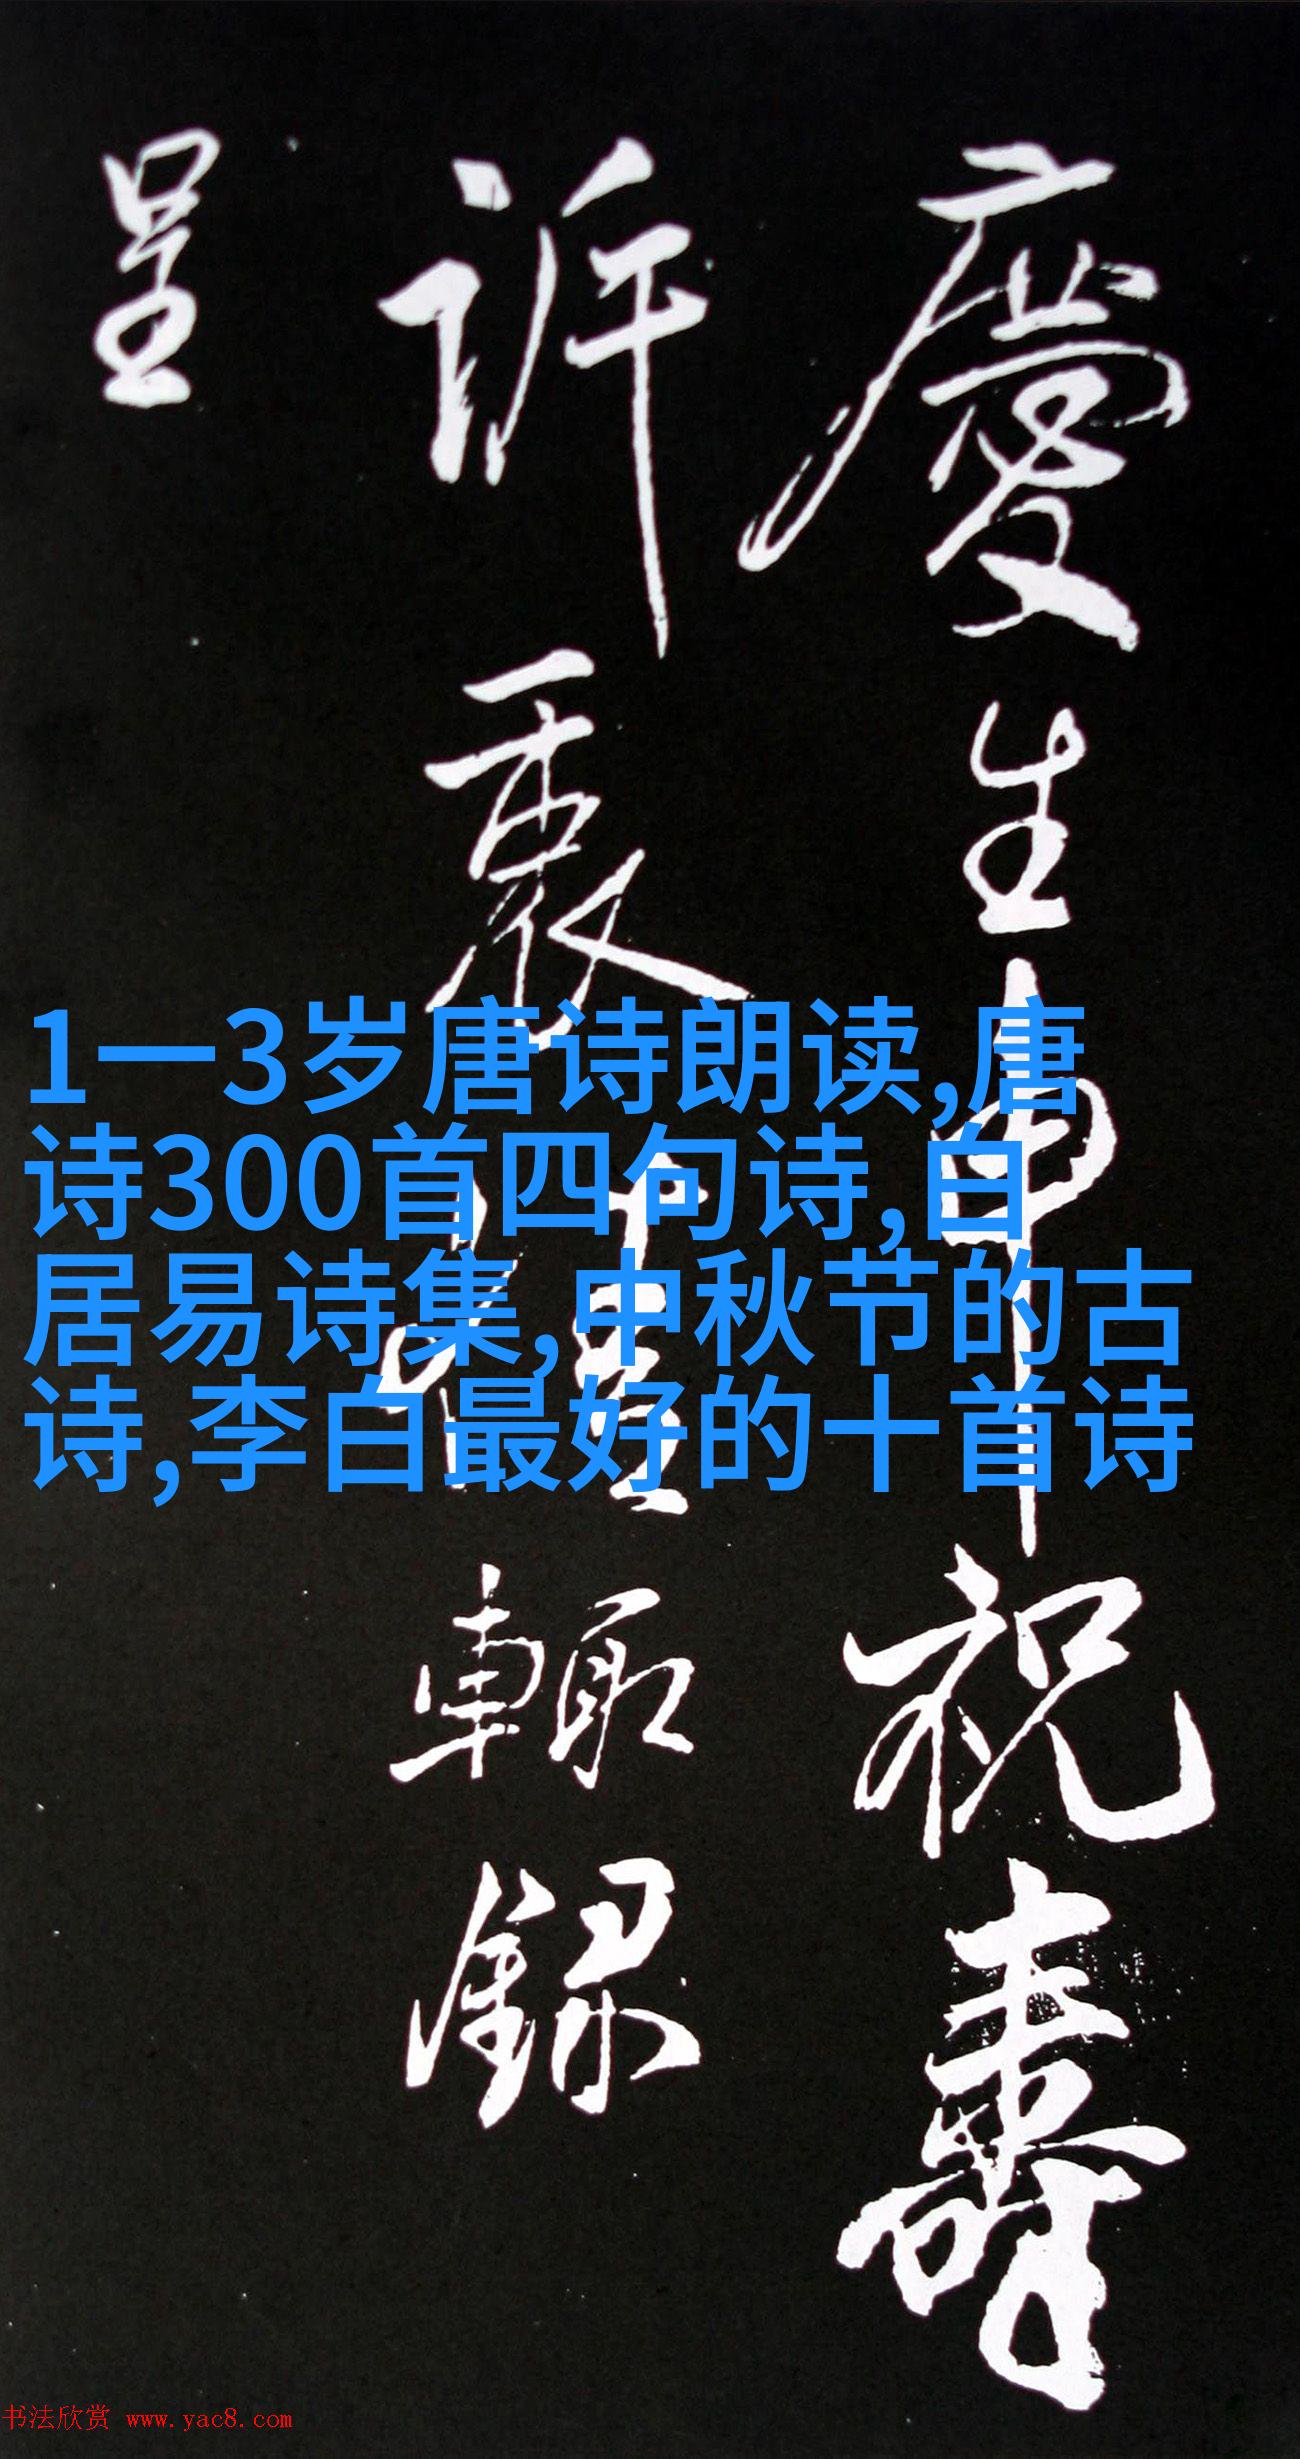 慶生申祝壽
訴衷情 輒錄
呈
1—3岁唐诗朗读,唐
诗300首四句诗,白
居易诗集,中秋节的古
诗,李白最好的十首诗
书法欣赏 www.yac8.com